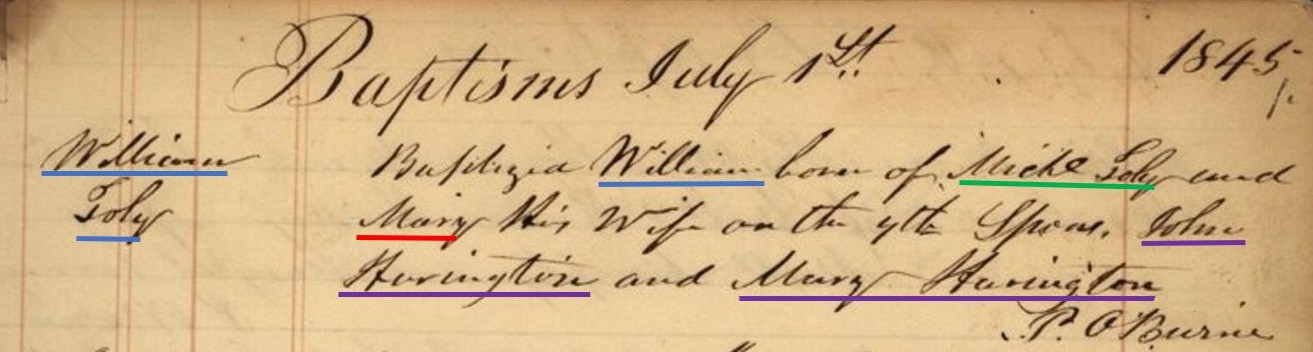 Baptisms July 1st 1845
William Baptizid William born of Michl Foly and
Foly Mary His Wife on the 9th Spons. John
Harington and Mary Harington
P. O'Burne